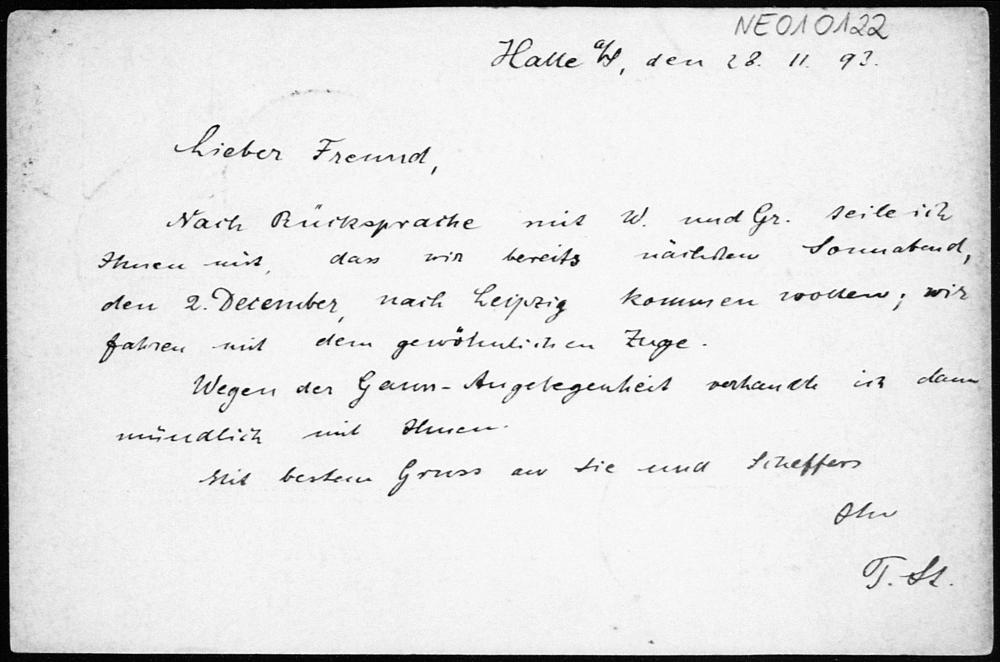 NE010122
Halle a/S, den 28. 11. 93.
Lieber Freund,
Nach Rücksprache mit W. und Gr. teile ich
Ihnen mit, dass wir bereits nächsten Sonnabend,
den 2. December, nach Leipzig kommen wollen; wir
fahren mit dem gewöhnlichen Zuge.
Wegen der Gauss-Angelegenheit verhandle ich dann
mündlich mit Ihnen.
Mit bestem Gruss an Sie und Scheffers
Ihr
T. St.